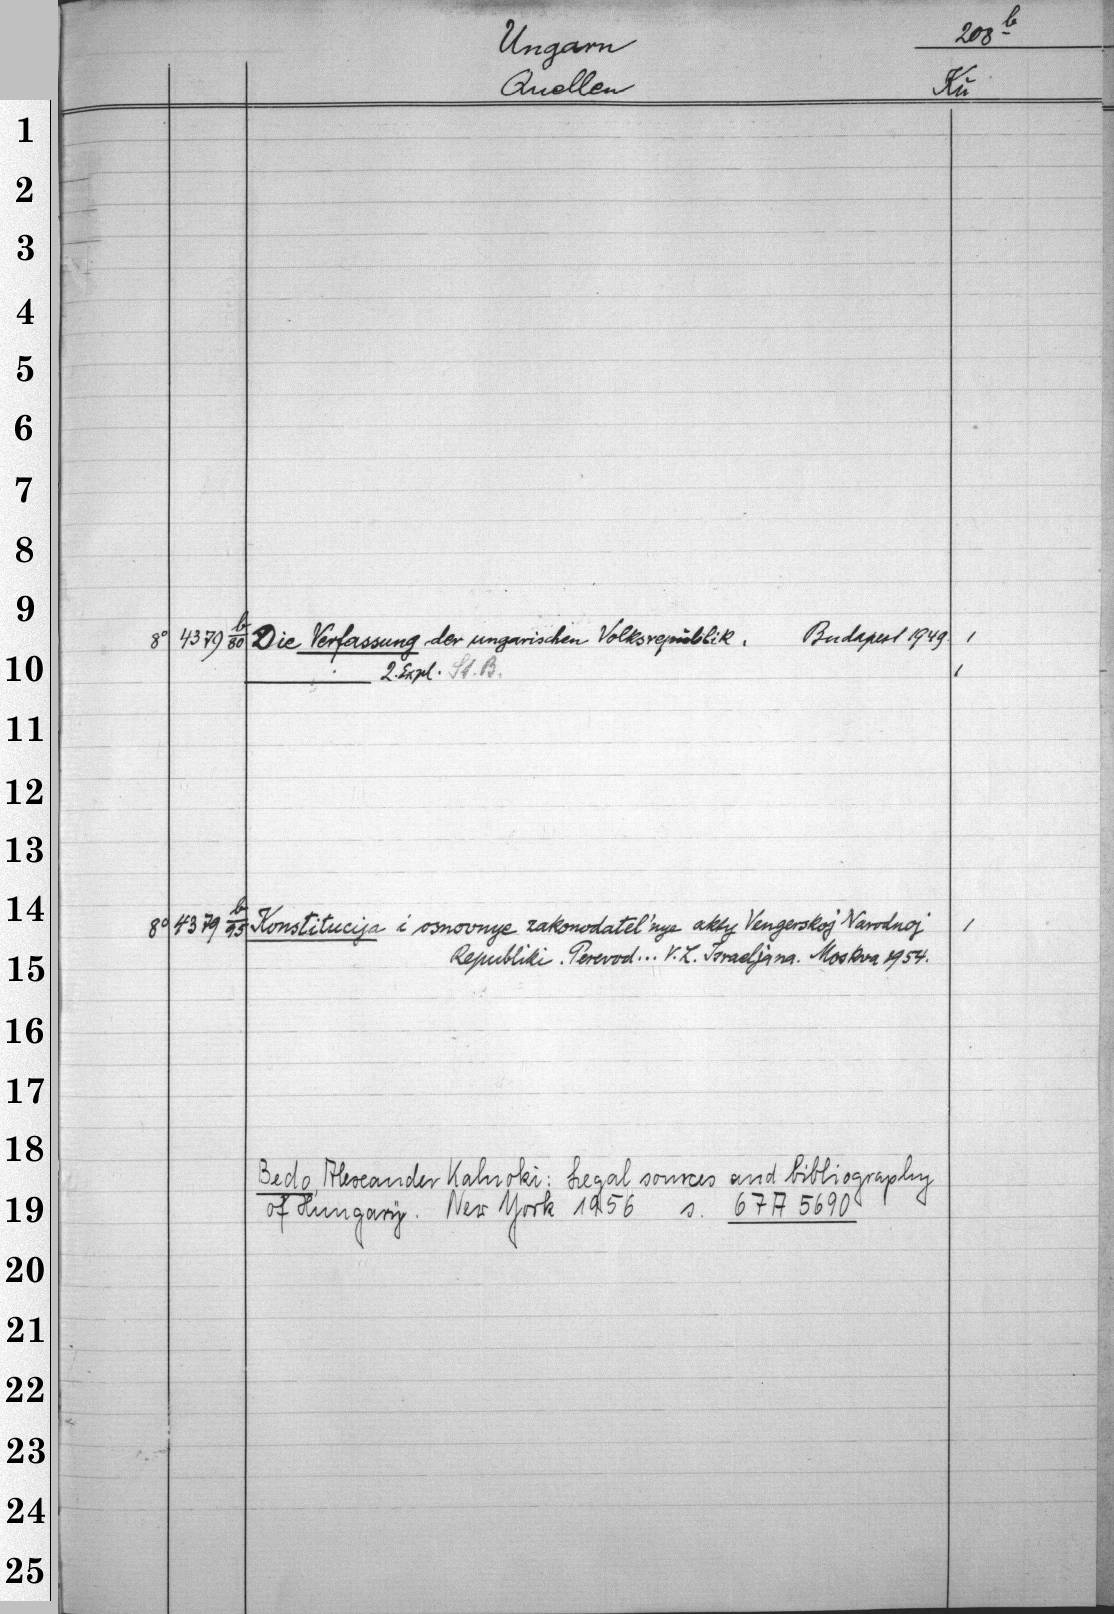 Ungarn 208 b
Quellen Kü
1
2
3
4
5
6
7
8
9
8° 4379 b/80 Die Verfassung der ungarischen Volksrepublik. Budapest 1949. 1
10 2. Expl. St. B. 1
11
12
13
14
8° 4379 b/95 Konstitucija i osnovnye zakonodatel'nye akty Vengerskoj Narodnoj 1
15 Republiki. Perevod... V. Z. Israeljana. Moskva 1954.
16
17
18
Bedo, Alexander Kalnoki: Legal sources and bibliography
19 of Hungary. New York 1956 s. 67 A 5690
20
21
22
23
24
25